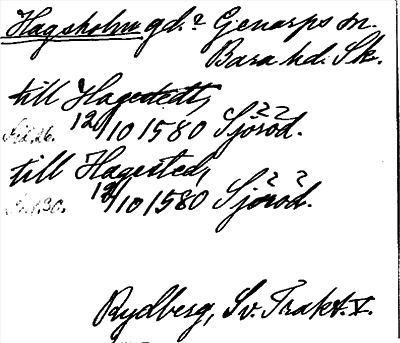 Hagsholm gd.? Genarps sn.
Bara hd. Sk.
till Hagestedt,
Sid. 26. 12/10 1580 Sjöröd.??
till Hagested,
12/10 1580 Sjöröd.??
Rydberg, Sv. Trakt. V.